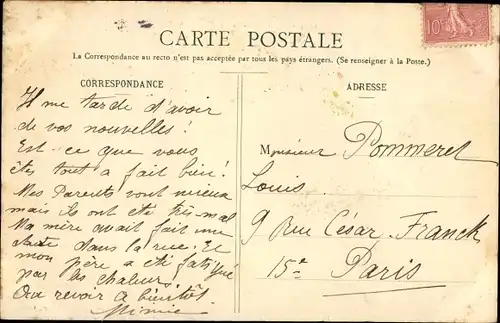 CARTE POSTALE
La Correspondance au recto n'est pas acceptée par tous les pays étrangers. (Se renseigner à la Poste.)
CORRESPONDANCE
Il me tarde d'avoir
de vos nouvelles!
Est-ce que vous
êtes tout a fait bien!
Mes Parents vont mieux
mais ils ont été très-mal
Ma mère avait fait une
chute dans la rue. Et
mon père a été fatigué
par les chaleurs.
Au revoir à bientôt.
Mimie
ADRESSE
Monsieur Pommeret
Louis.
9 Rue César-Franck
15e Paris
10c